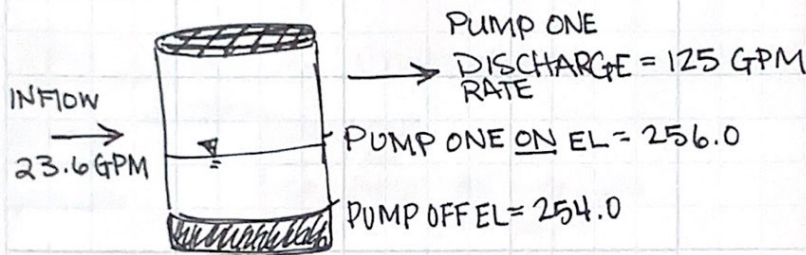 PUMP ONE
DISCHARGE = 125 GPM
RATE
INFLOW
23.6 GPM
PUMP ONE ON EL = 256.0
PUMP OFF EL = 254.0